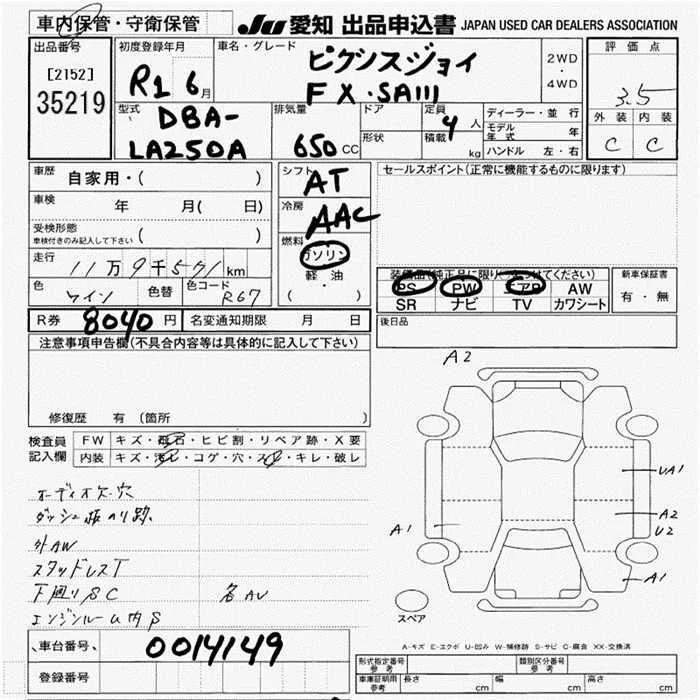 車内保管・守衛保管
JU 愛知 出品申込書 JAPAN USED CAR DEALERS ASSOCIATION
出品番号
[2152]
35219
初度登録年月
R1 6月
車名・グレード
ピクシスジョイ
F X・SAIII
2WD
・
4WD
評価点
3.5
外装 内装
C C
型式
DBA-
LA250A
排気量
650 CC
ドア
形状
定員
4人
積載
kg
ディーラー・並行
モデル年式 年
ハンドル 左・右
車歴
自家用・( )
車検
年 月( 日)
受検形態
車検付きのみ記入して下さい ( )
走行
11万9千571km
色
ワイン
色替
色コード
R67
シフト
AT
冷房
AAC
燃料
ガソリン
軽油
( ・ )
セールスポイント(正常に機能するものに限ります)
装備品(純正品に限り てください)
PS PW エアB AW
SR ナビ TV カワシート
新車保証書
有・無
R券 8040円
名変通知期限 月 日
後日品
注意事項申告欄(不具合内容等は具体的に記入して下さい)
修復歴 有(箇所 )
検査員
記入欄
FW キズ・飛石・ヒビ割・リペア跡・X要
内装 キズ・汚レ・コゲ・穴・スレ・キレ・破レ
オーディオ欠.穴
ダッシュ板のり跡.
外AW
スタッドレスT
下廻りSC
各AU
エンジンルーム内S
A2
UA1
A2
U2
A1
A1
スペア
A-キズ E-エクボ U-凹み W-補修跡 S-サビ C-腐食 XX-交換済
車台番号
0014149
登録番号
形式指定番号
参考
類別区分番号
参考
車庫証明用
参考
長さ cm
幅 cm
高さ cm